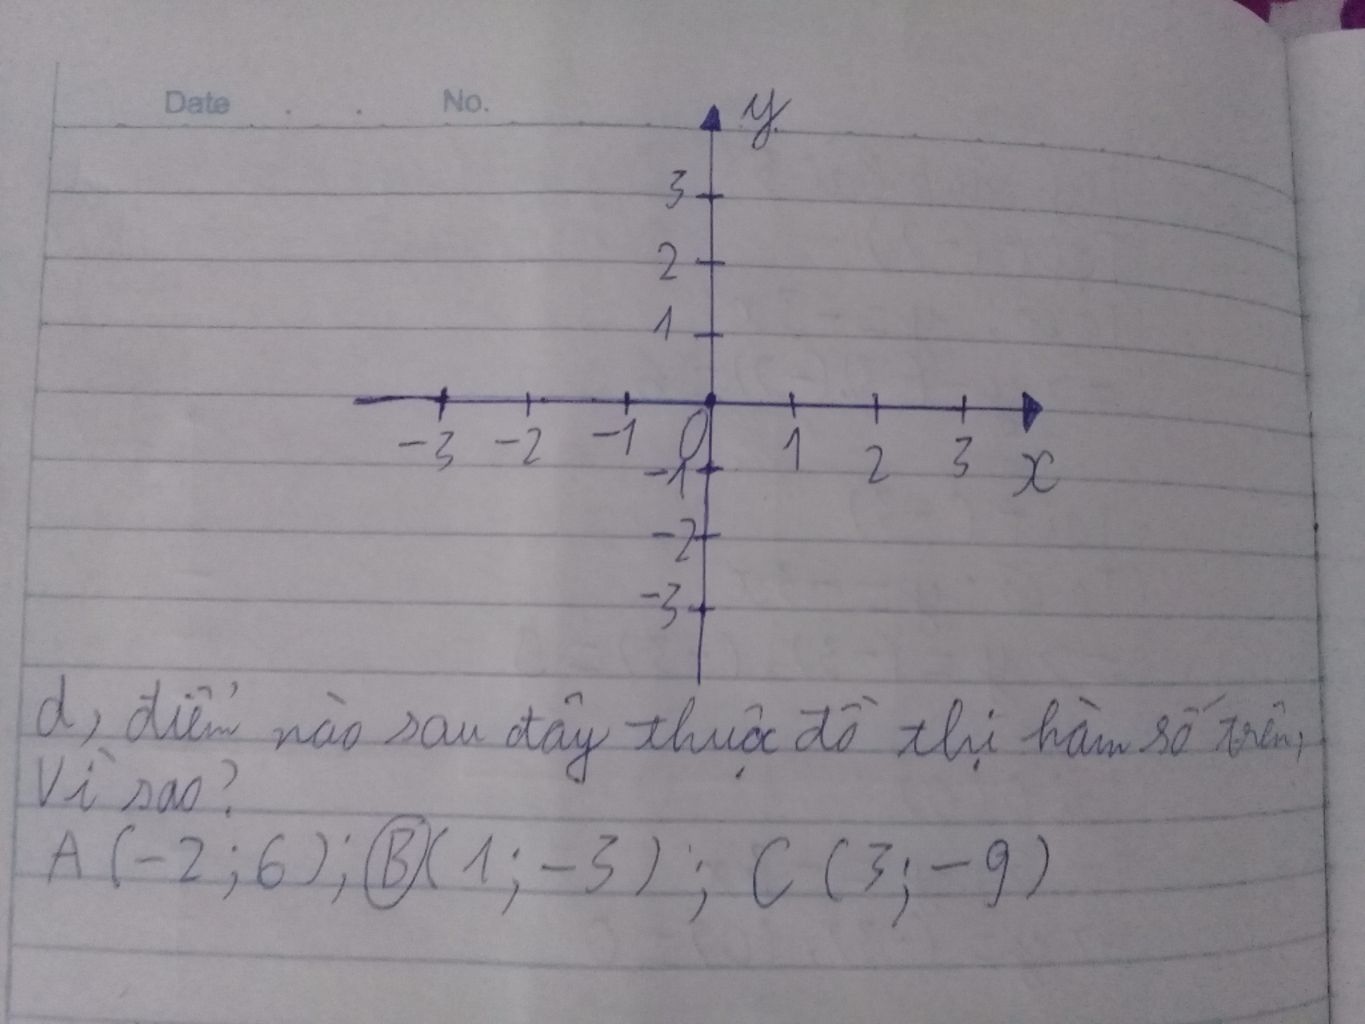 Date . . No.
y
3
2
1
-3 -2 -1 O 1 2 3 x
-1
-2
-3
d, điểm nào sau đây thuộc đồ thị hàm số trên,
Vì sao?
A (-2 ; 6) ; B (1 ; -3) ; C (3 ; -9)